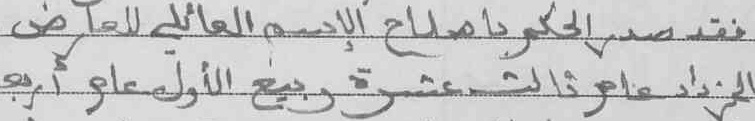 فقد صدر الحكم باصلاح الإسم العائلي للعارض
المزداد عام ثالث عشرة ربيع الأول عام أربع